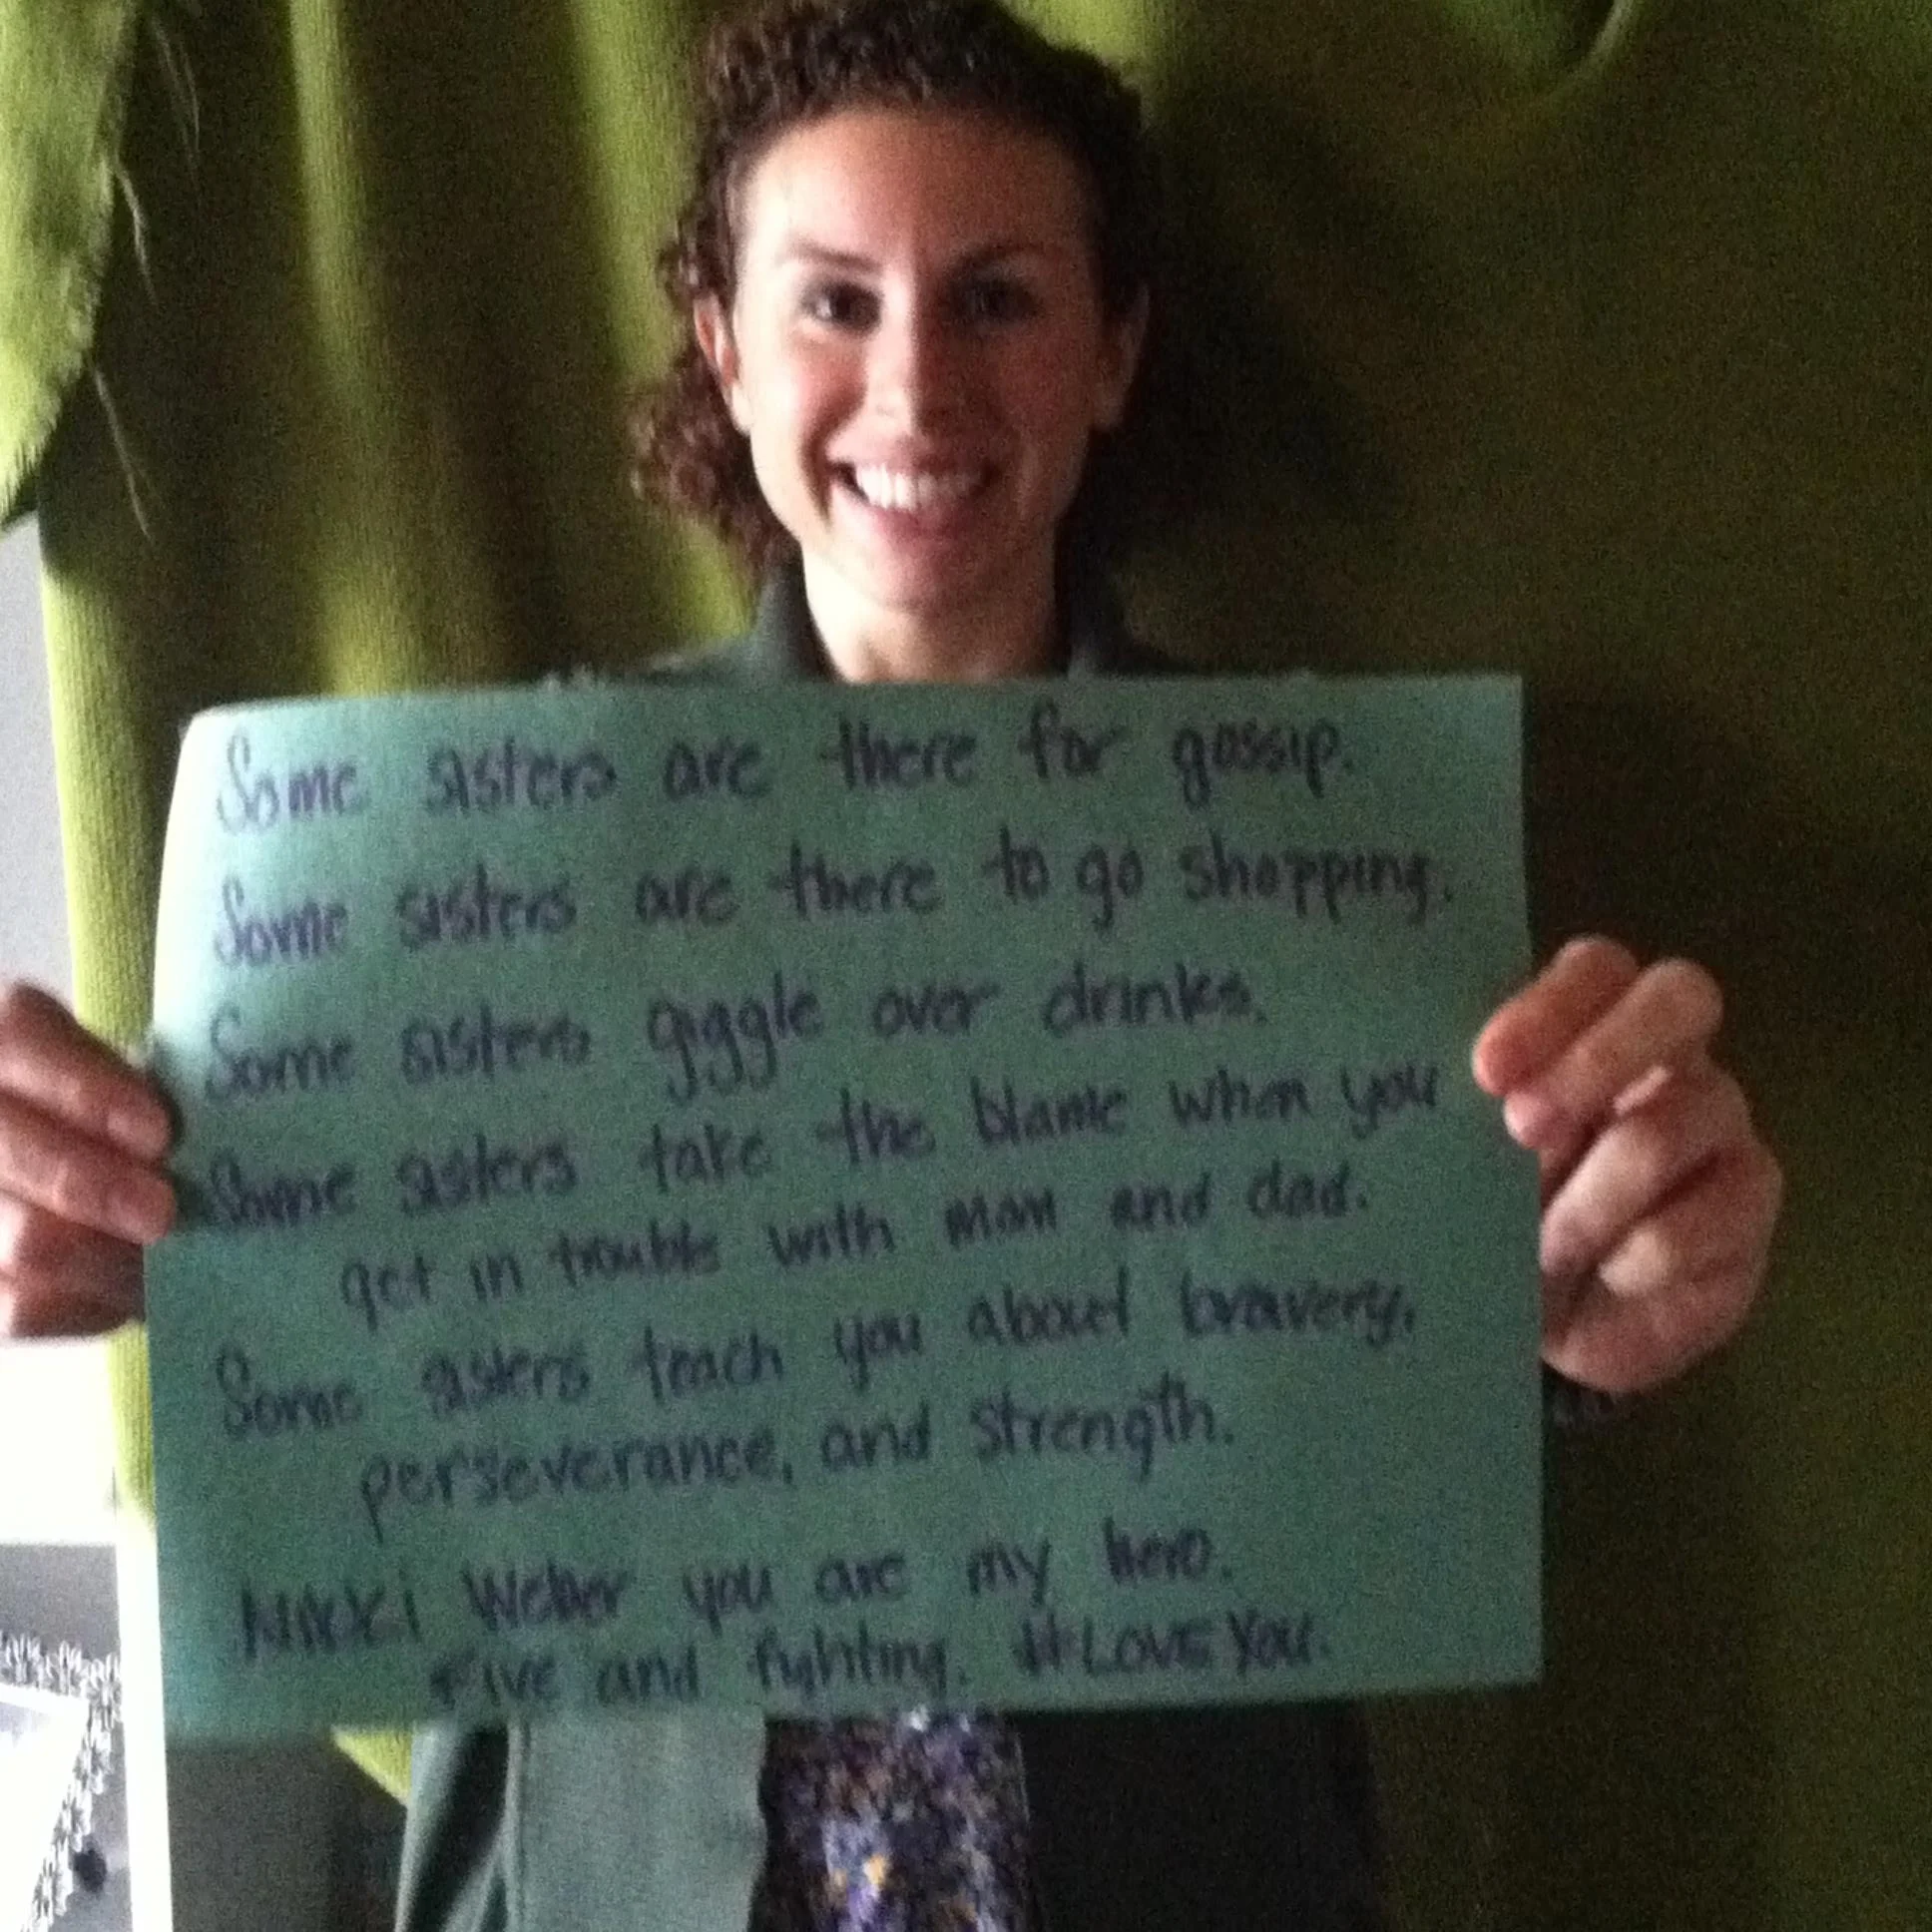 Some sisters are there for gossip.
Some sisters are there to go shopping.
Some sisters giggle over drinks.
Some sisters take the blame when you
get in trouble with mom and dad.
Some sisters teach you about bravery,
perseverance, and strength.
Nikki Weber you are my hero.
Five and fighting. #LOVEYOU.